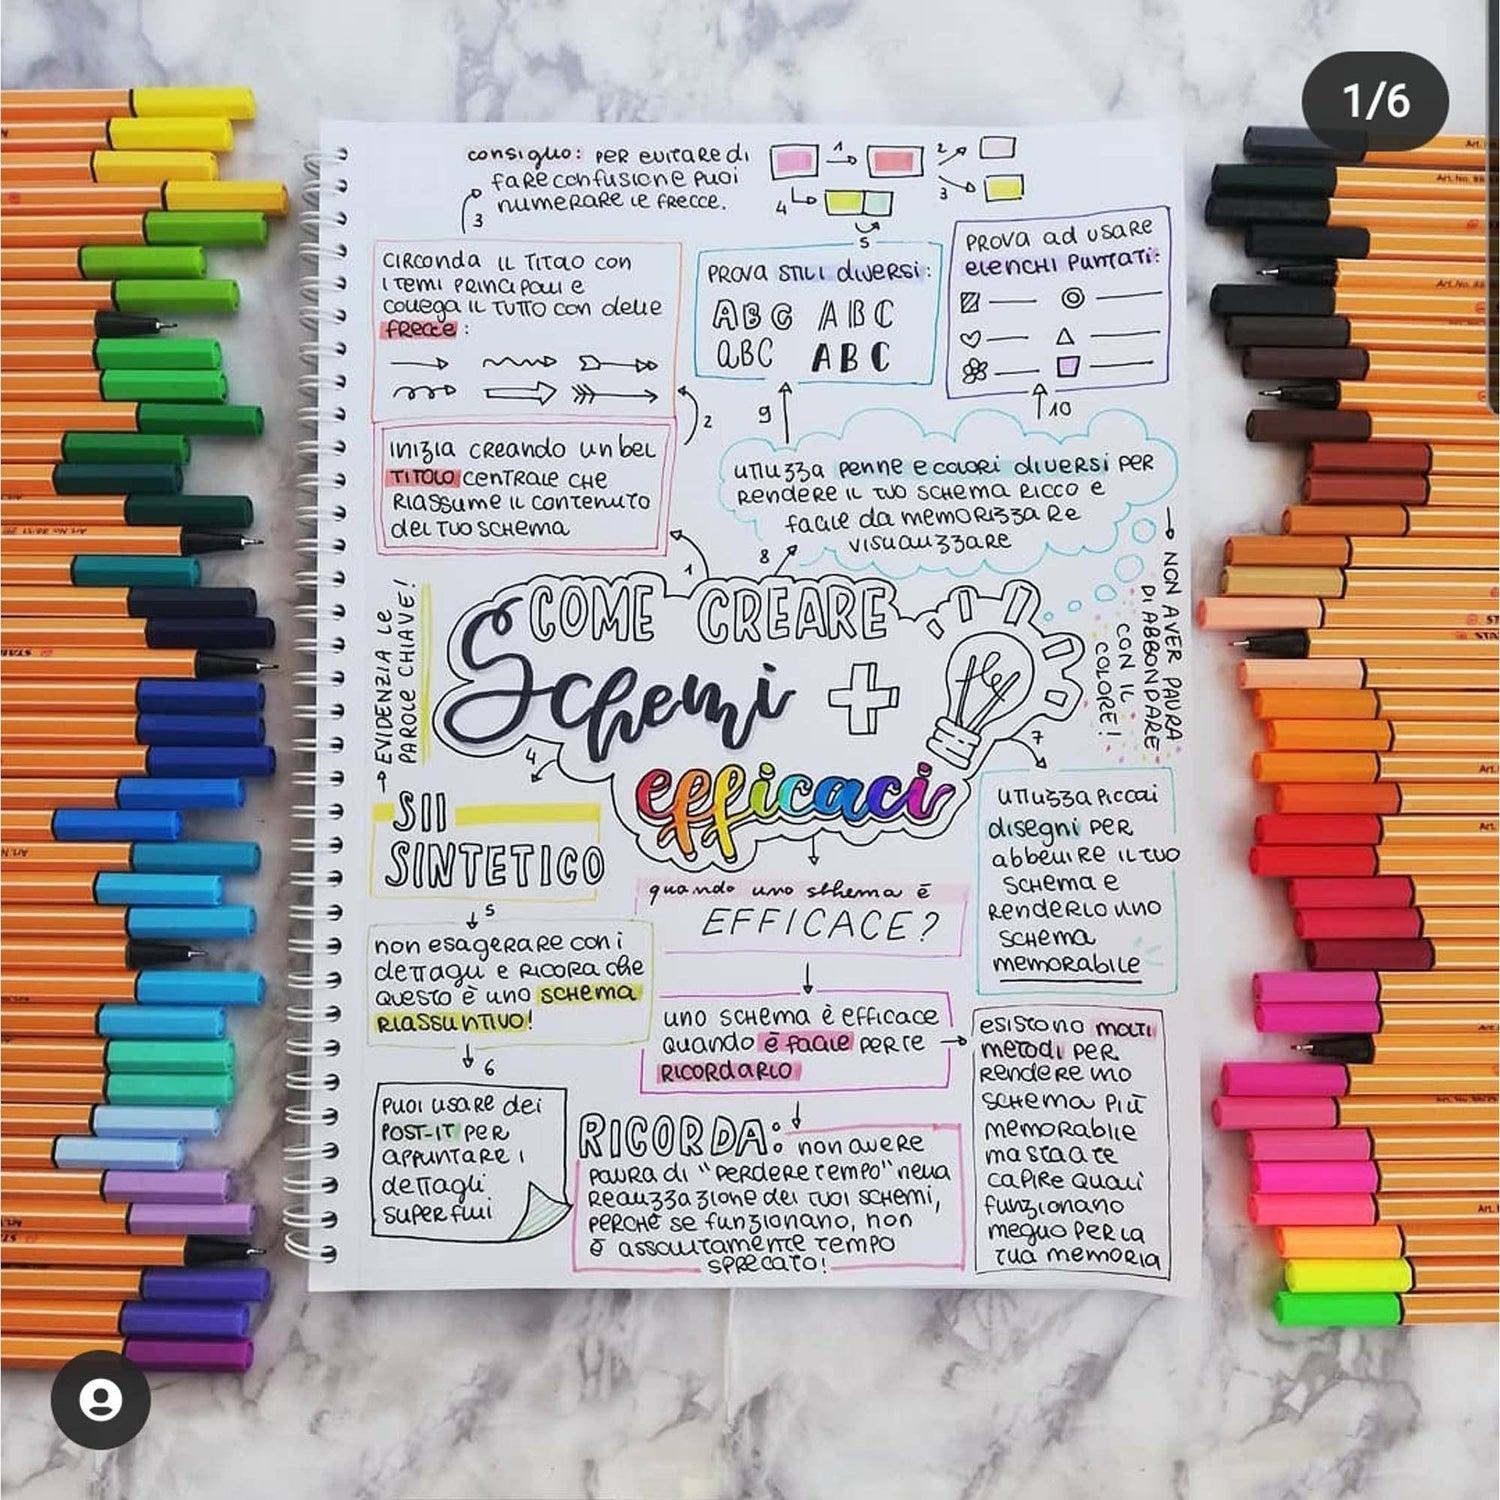 1/6
consiglio: PER EVITARE di
fare confusione puoi
numerare le frecce.
1
2
3
4
5
3
CIRCONDA IL TITOLO CON
I TEMI PRINCIPALI E
COLLEGA IL TUTTO CON DELLE
FRECCE:
PROVA STILI DIVERSI:
ABC ABC
ABC ABC
PROVA ad USARE
ELENCHI PUNTATI:
2
9
10
INIZIA CREANDO UN BEL
TITOLO CENTRALE CHE
RIASSUME IL CONTENUTO
DEL TUO SCHEMA
UTILIZZA PENNE E COLORI DIVERSI PER
RENDERE IL TUO SCHEMA RICCO E
FACILE DA MEMORIZZARE
VISUALIZZARE
1
8
NON AVER PAURA
DI ABBONDARE
CON IL
COLORE!
EVIDENZIA LE
PAROLE CHIAVE!
COME CREARE
Schemi +
efficaci
4
7
SII
SINTETICO
UTILIZZA PICCOLI
DISEGNI PER
ABBELLIRE IL TUO
SCHEMA E
RENDERLO UNO
SCHEMA
MEMORABILE
quando uno schema è
EFFICACE?
5
non esagerare con i
dettagli e RICORDA che
questo è uno SCHEMA
RIASSUNTIVO!
uno SCHEMA è EFFICACE
quando è facile PER TE
RICORDARLO
6
esistono MOLTI
METODI PER
RENDERE uno
SCHEMA PIÙ
MEMORABILE
ma sta a te
CAPIRE QUALI
funzionano
MEGLIO PER LA
TUA MEMORIA
PUOI USARE DEI
POST-IT PER
APPUNTARE I
DETTAGLI
SUPERFLUI
RICORDA: non avere
PAURA di "PERDERE TEMPO" nella
REALIZZAZIONE DEI TUOI SCHEMI,
PERCHÉ SE funzionano, non
è assolutamente tempo
SPRECATO!